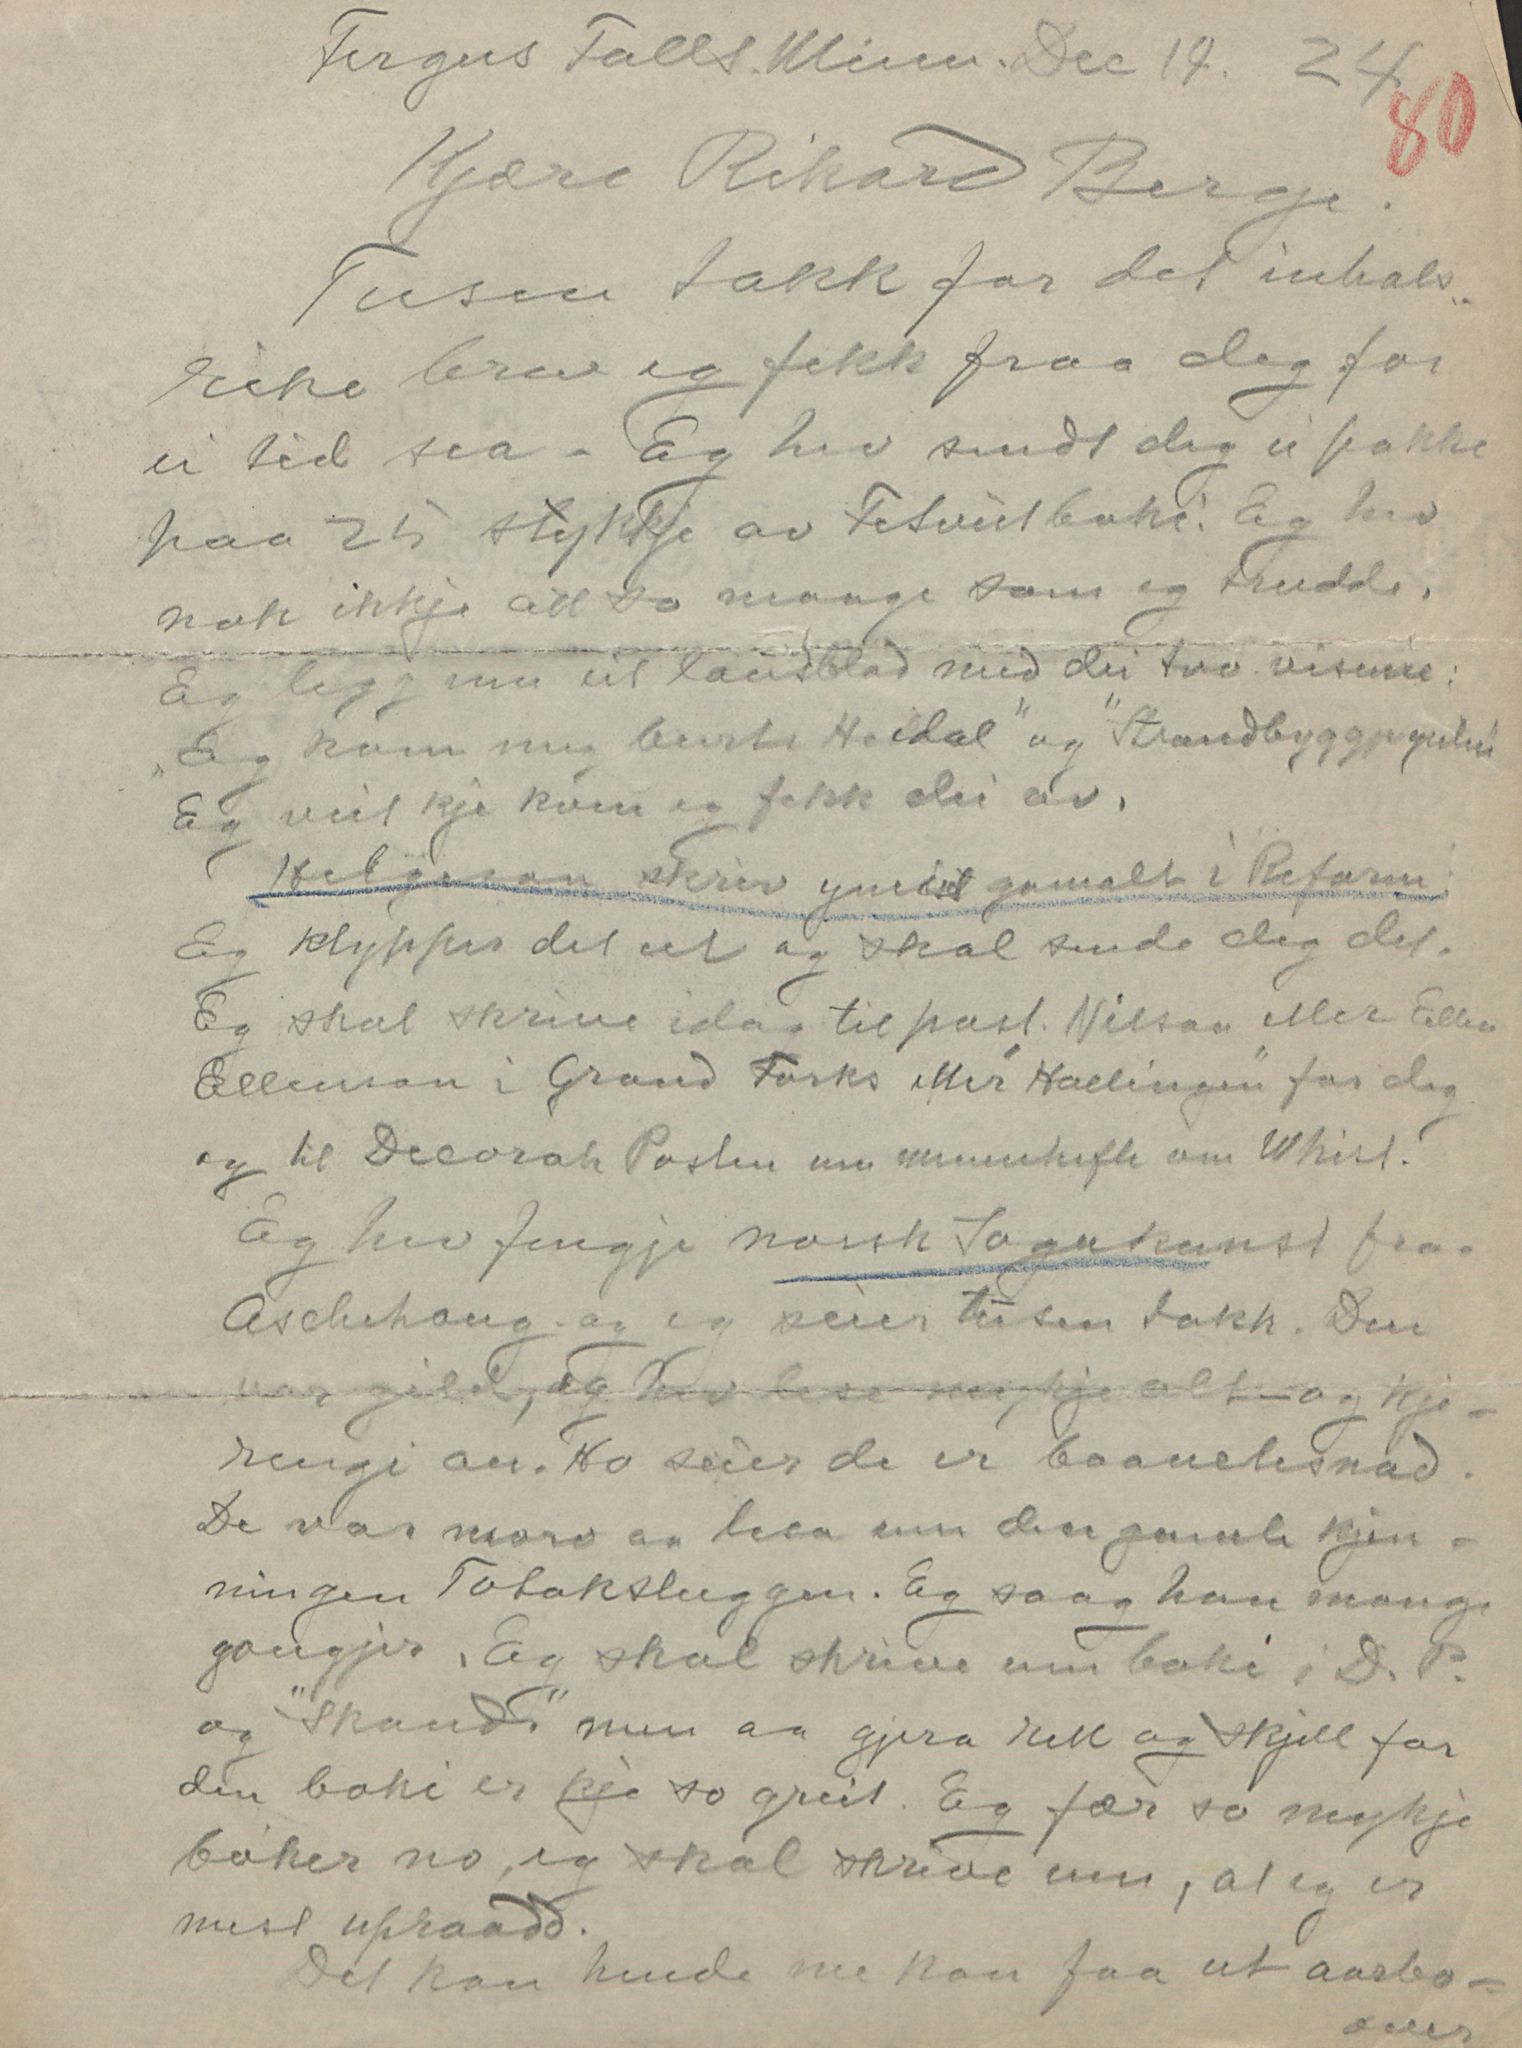 Fergus Falls. Minn. Dec 19. 24
80
Kjære Rikard Berge.
Tusen takk for det inhals-
rike brev eg fekk fraa deg for
ei tid sea - Eg hev sendt deg ei pakke
paa 25 stykkje av Fetveitboki. Eg hev
nok ikkje att so mange som eg trudde.
Eg legg inn eit lausblad med dei tvo visune:
"Eg kom meg burti Heidal" og "Strandbyggj
Eg veit kje kvem eg fekk dei av.
Helgeson skriv ymist gamalt i Reform.
Eg klypper det ut og skal sende deg det.
Eg skal skrive idag til past. Nilson etter Ellen
Ellenson i Grand Forks etter "Hallingen" for deg
og til Decorah Posten um minnehefte om Whist.
Eg hev fengje norsk Sogukunst fraa
Aschehoug - og eg seier tusen takk. Den
var gild, eg hev lese mykje alt - og kje-
rengi au. Ho seier de er baanelesnad.
De var moro aa lesa um den gamle kjen-
ningen Totaksluggen. Eg saag han mange
gongjer. Eg skal skrive um boki i D. P.
og "Skand." men aa gjera rett og skjell for
den boki er kje so greit. Eg fær so mykje
bøker no, eg skal skrive um, at eg er
mest upraadd.
Det kan hende me kan faa ut aarbo-
over